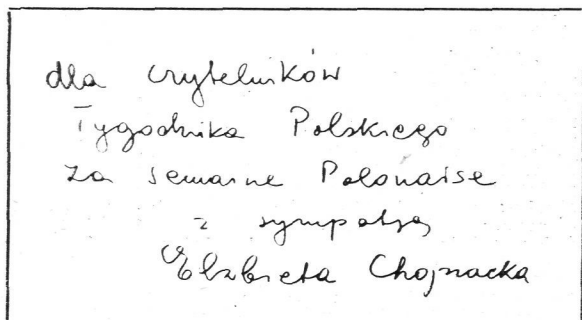 dla czytelników
Tygodnika Polskiego
La semaine Polonaise
z sympatią
Elżbieta Chojnacka